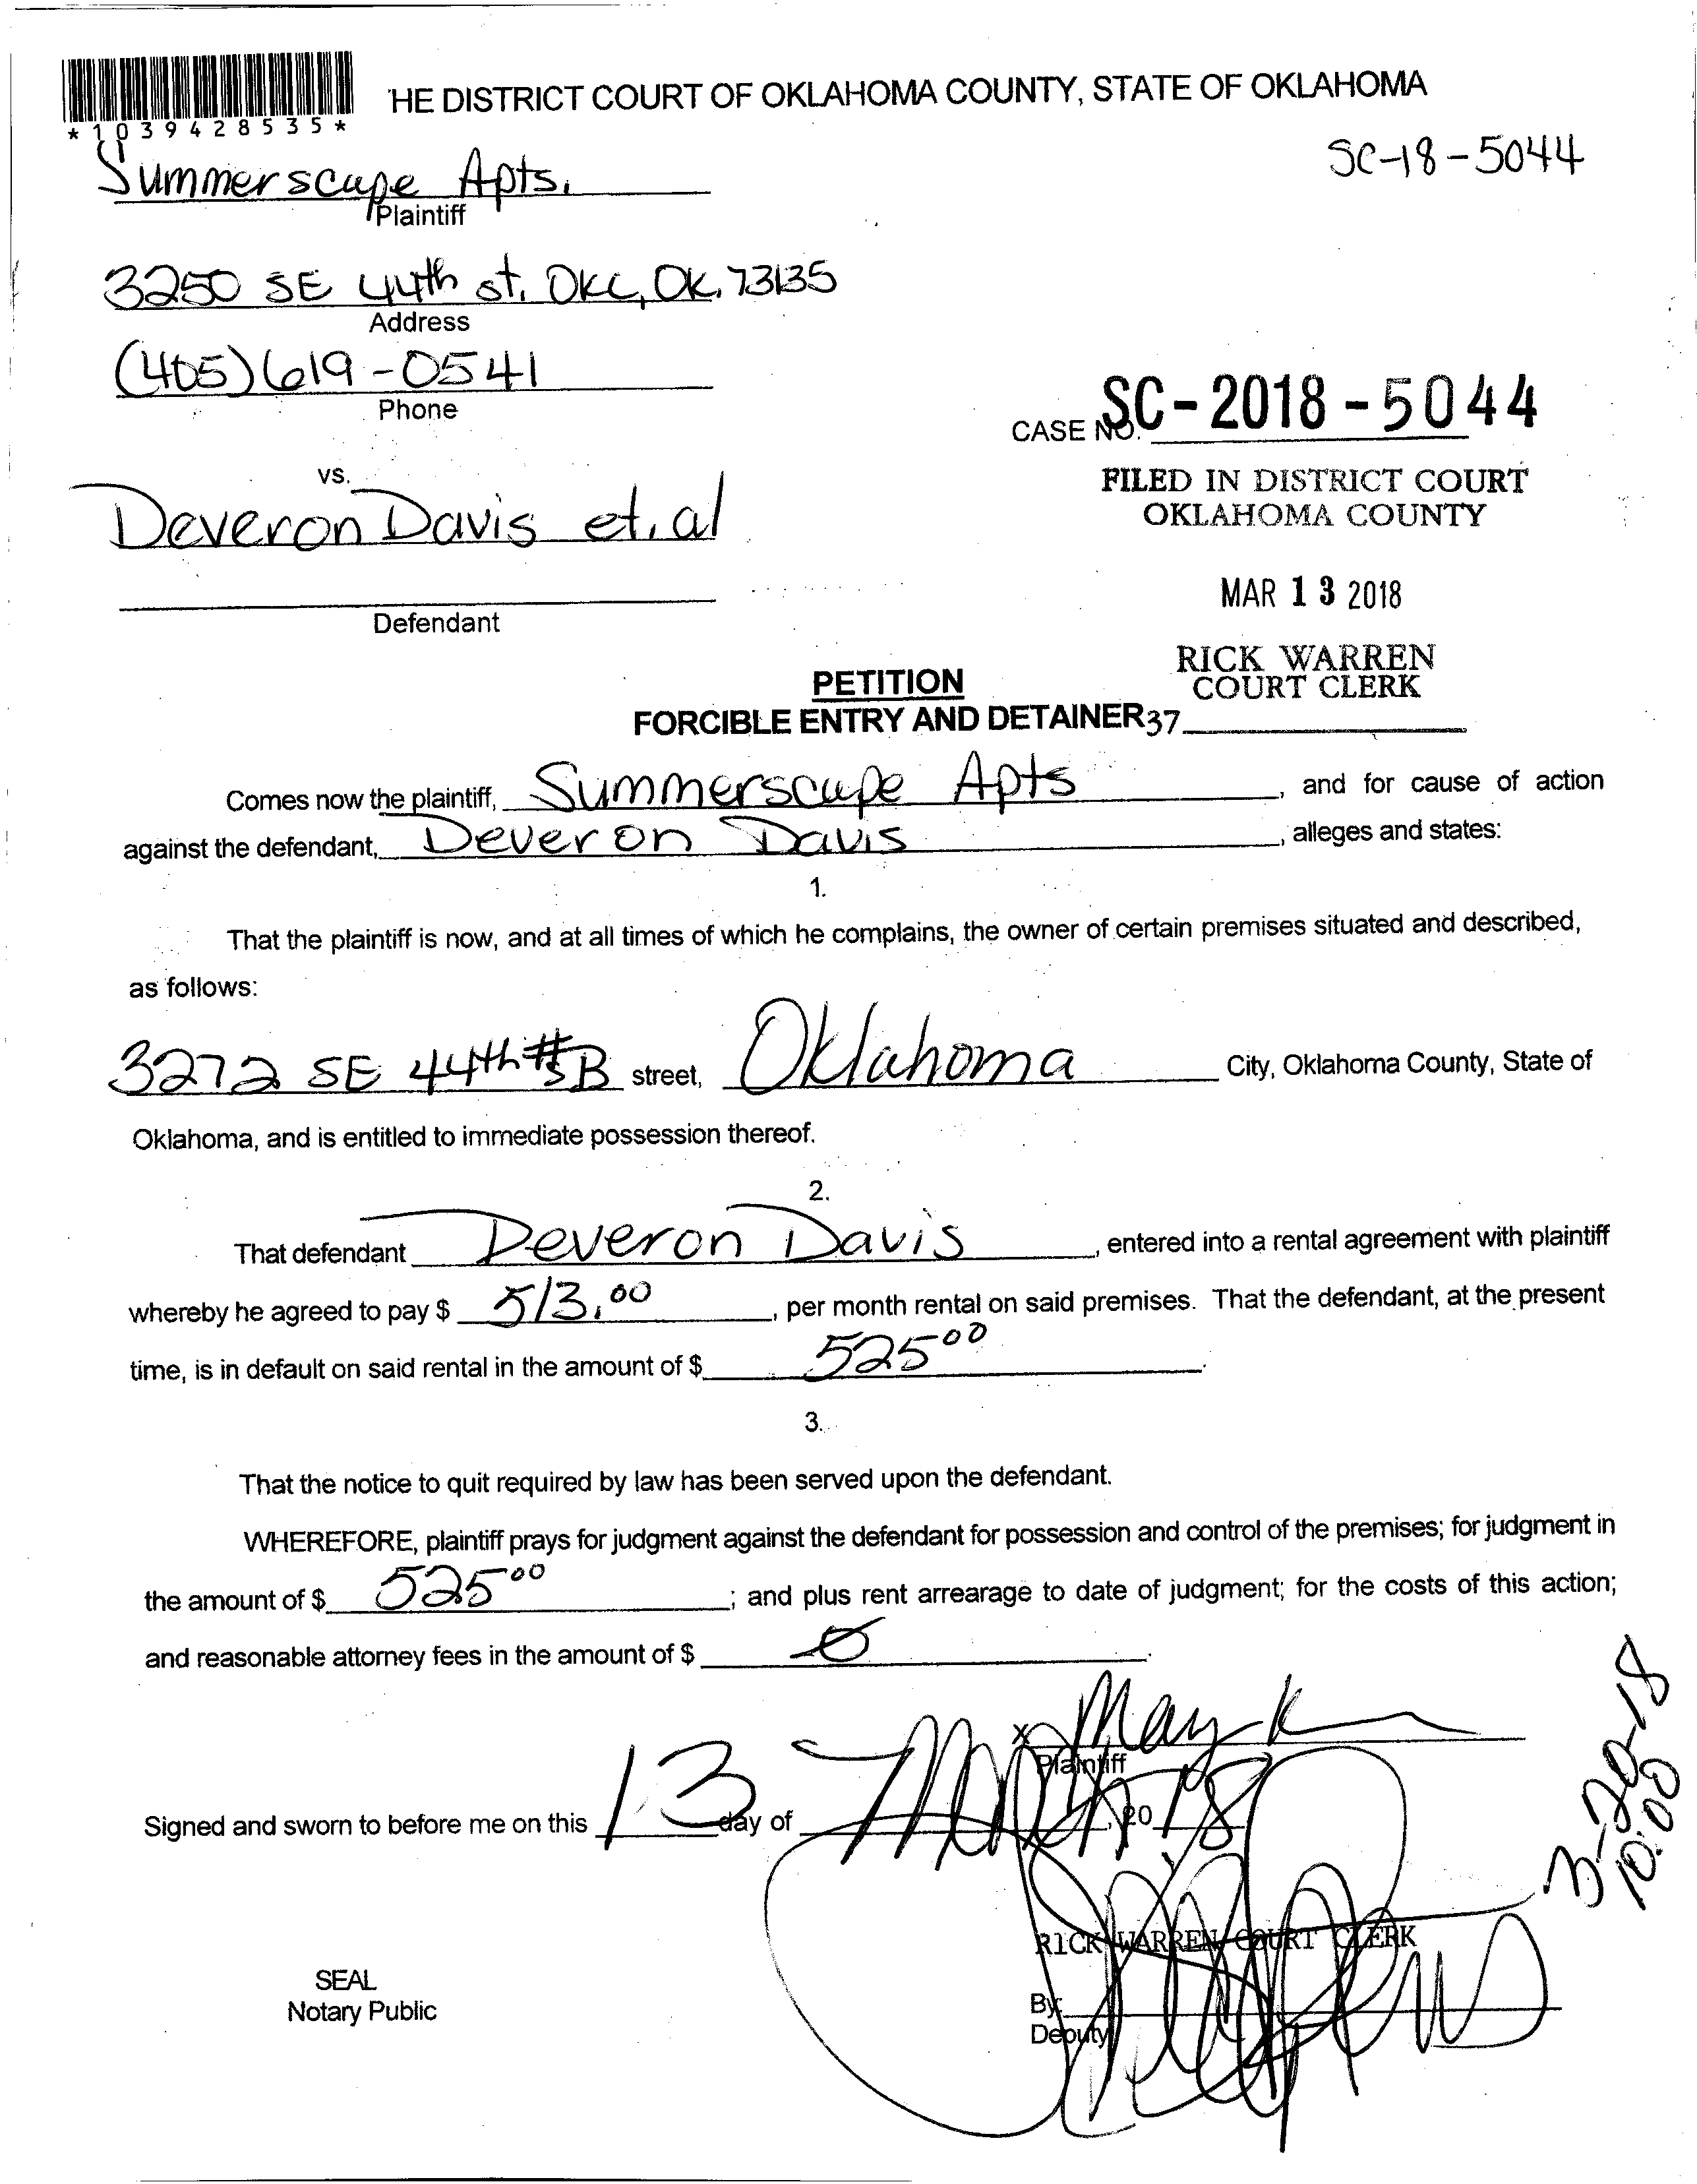 HE DISTRICT COURT OF OKLAHOMA COUNTY, STATE OF OKLAHOMA
*1039428535*
SC-18-5044
Summerscape Apts.
Plaintiff
3250 SE 44th st. OKC, OK. 73135
Address
(405) 619-0541
Phone
CASE NO. SC-2018-5044
vs.
FILED IN DISTRICT COURT
OKLAHOMA COUNTY
Deveron Davis et. al
MAR 13 2018
Defendant
RICK WARREN
COURT CLERK
PETITION
FORCIBLE ENTRY AND DETAINER 37
Comes now the plaintiff, Summerscape Apts, and for cause of action
against the defendant, Deveron Davis, alleges and states:
1.
That the plaintiff is now, and at all times of which he complains, the owner of certain premises situated and described,
as follows:
3272 SE 44th #B street, Oklahoma City, Oklahoma County, State of
Oklahoma, and is entitled to immediate possession thereof.
2.
That defendant Deveron Davis, entered into a rental agreement with plaintiff
whereby he agreed to pay $ 513.00, per month rental on said premises. That the defendant, at the present
time, is in default on said rental in the amount of $ 525 00.
3.
That the notice to quit required by law has been served upon the defendant.
WHEREFORE, plaintiff prays for judgment against the defendant for possession and control of the premises; for judgment in
the amount of $ 525 00; and plus rent arrearage to date of judgment; for the costs of this action;
and reasonable attorney fees in the amount of $ 0.
X
Plaintiff
Signed and sworn to before me on this 13 day of March, 2018
3-20-18
10:00
RICK WARREN COURT CLERK
SEAL
Notary Public
By:
Deputy